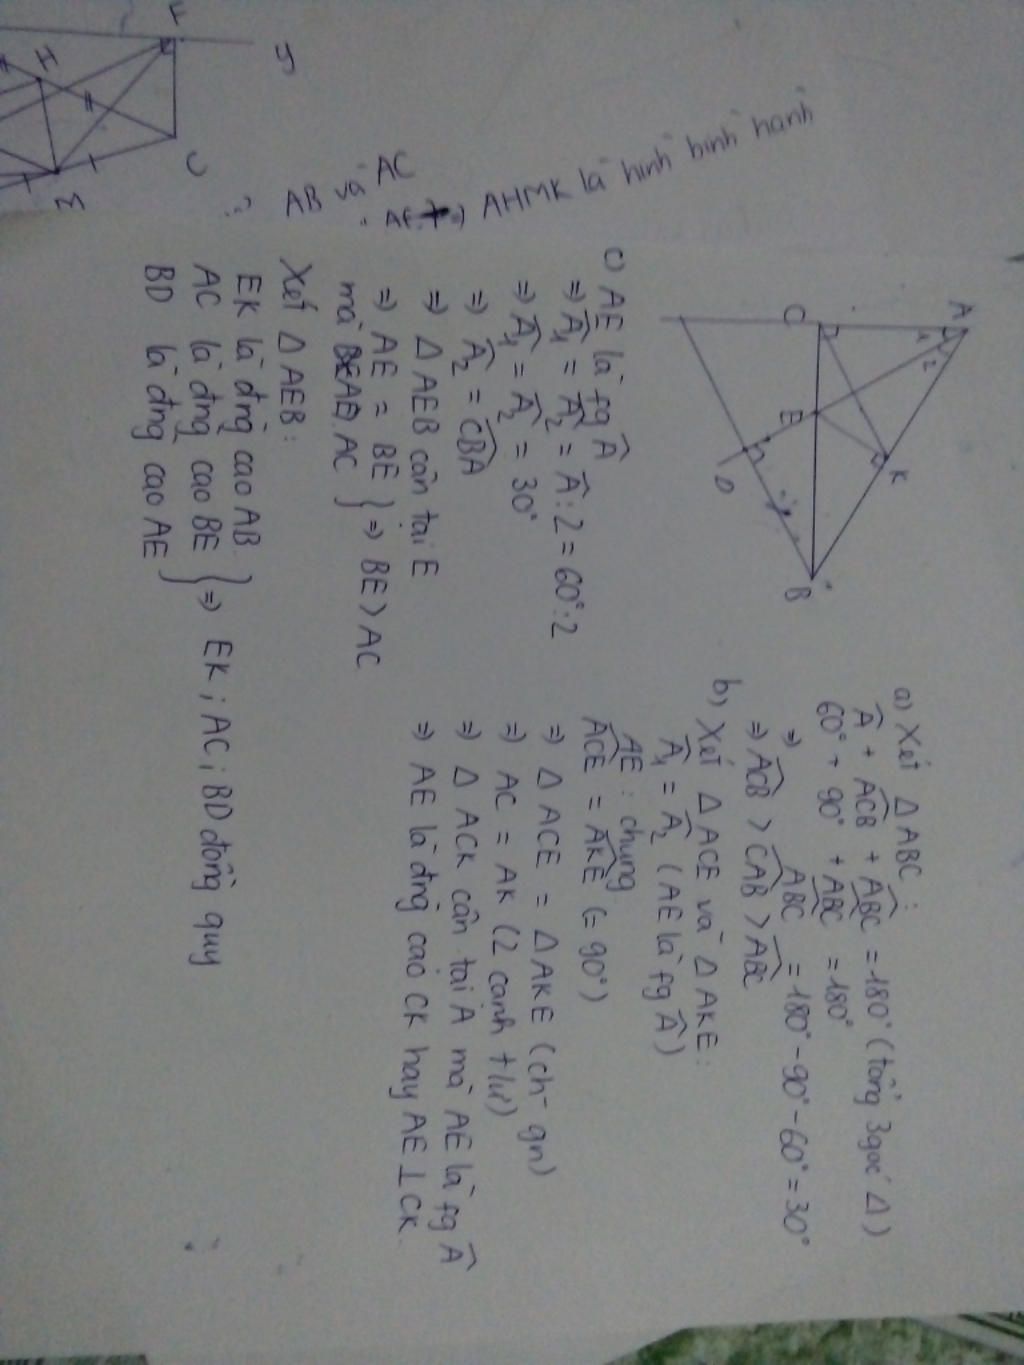 F
y
H
C
M
AB và AC
AHMK là hình bình hành
A
1 2
C
E
K
D
B
a) Xét Δ ABC :
Â + ACB + ABC = 180° (tổng 3 góc Δ)
60° + 90° + ABC = 180°
⇒ ABC = 180° - 90° - 60° = 30°
⇒ ACB > CAB > ABC
b) Xét Δ ACE và Δ AKE :
Â1 = Â2 (AE là fg Â)
AE : chung
ACE = AKE (= 90°)
⇒ Δ ACE = Δ AKE (ch - gn)
⇒ AC = AK (2 cạnh t/ứ)
⇒ Δ ACK cân tại A mà AE là fg Â
⇒ AE là đng cao CK hay AE ⊥ CK.
c) AE là fg Â
⇒ Â1 = Â2 = Â : 2 = 60° : 2
⇒ Â1 = Â2 = 30°
⇒ Â2 = CBA
⇒ Δ AEB cân tại E
⇒ AE = BE } ⇒ BE > AC
mà AE > AC
Xét Δ AEB :
EK là đng cao AB
AC là đng cao BE } ⇒ EK ; AC ; BD đồng quy
BD là đng cao AE